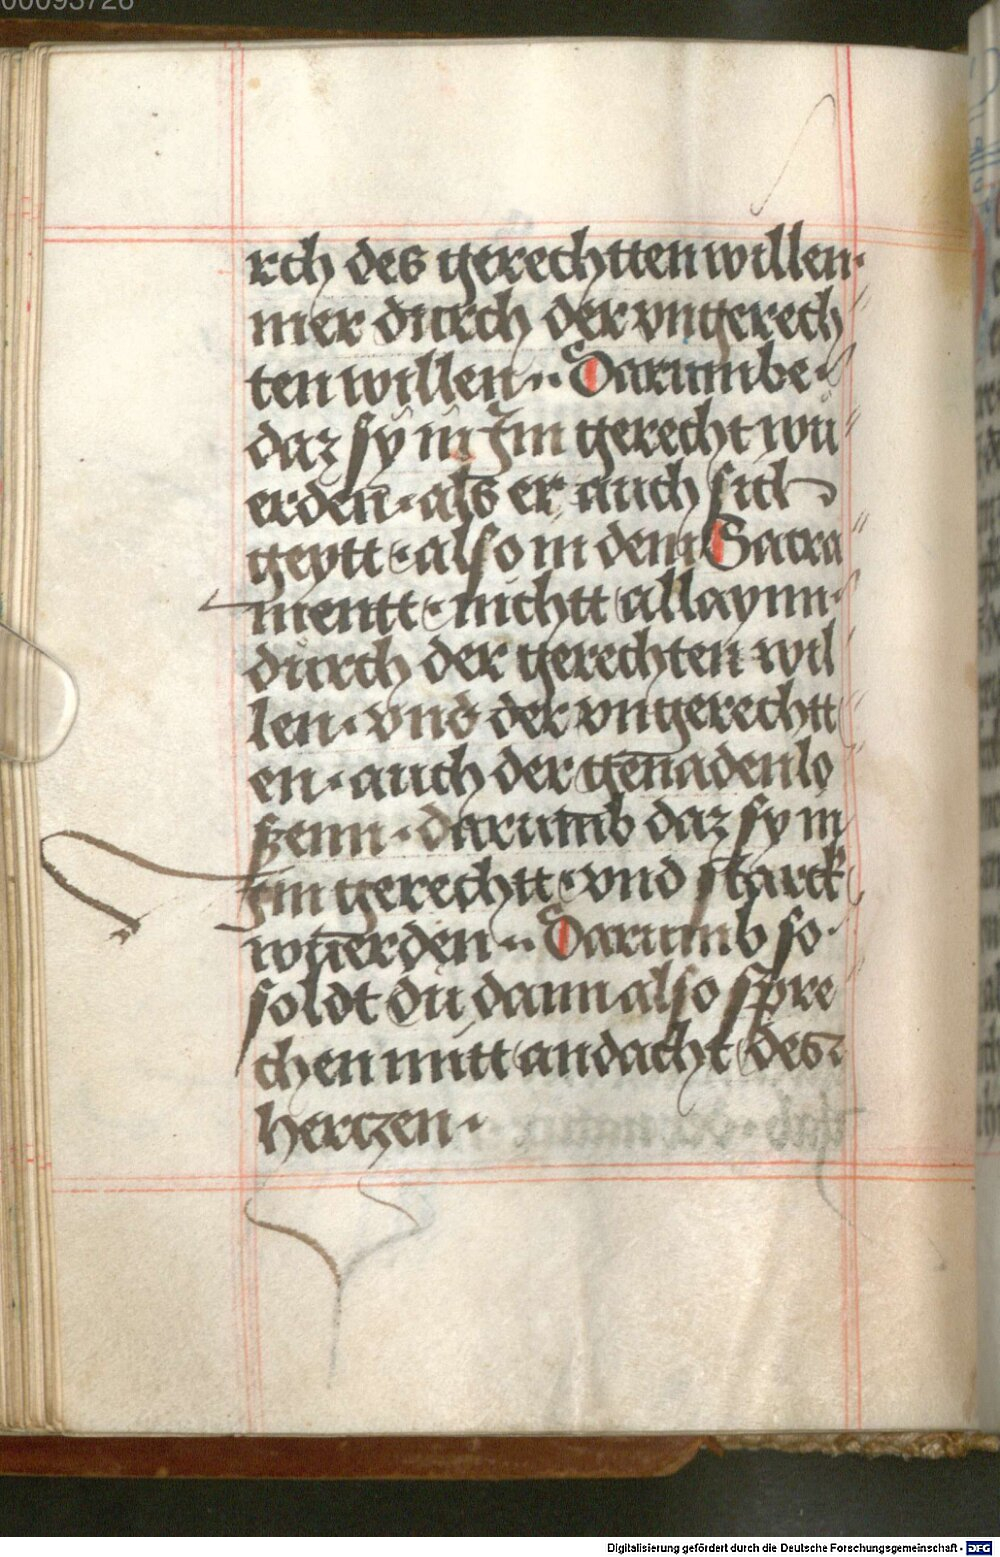 00093726
rch des gerechtten willen·
mer durch der vngerech
ten willen·· Darumbe·
daz sÿ in Jm gerecht wu
erden· als er auch sich
geytt· also in dem Sacra
mentt· nichtt allaynn·
durch der gerechten wil
len· vnd der vngerechtt
en· auch der genadenlo
szenn· darumb daz sy in
Jm gerechtt· vnd starck
wuerden·· Darumb so·
soldt du dann also spre
chen mitt andacht des
herczen·
Digitalisierung gefördert durch die Deutsche Forschungsgemeinschaft - DFG